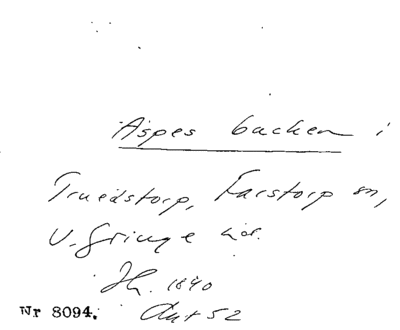 Aspes backen i
Truedstorp, Farstorp sn,
V. Göinge hd.
Jh. 1890
Nr 8094. Ant 52